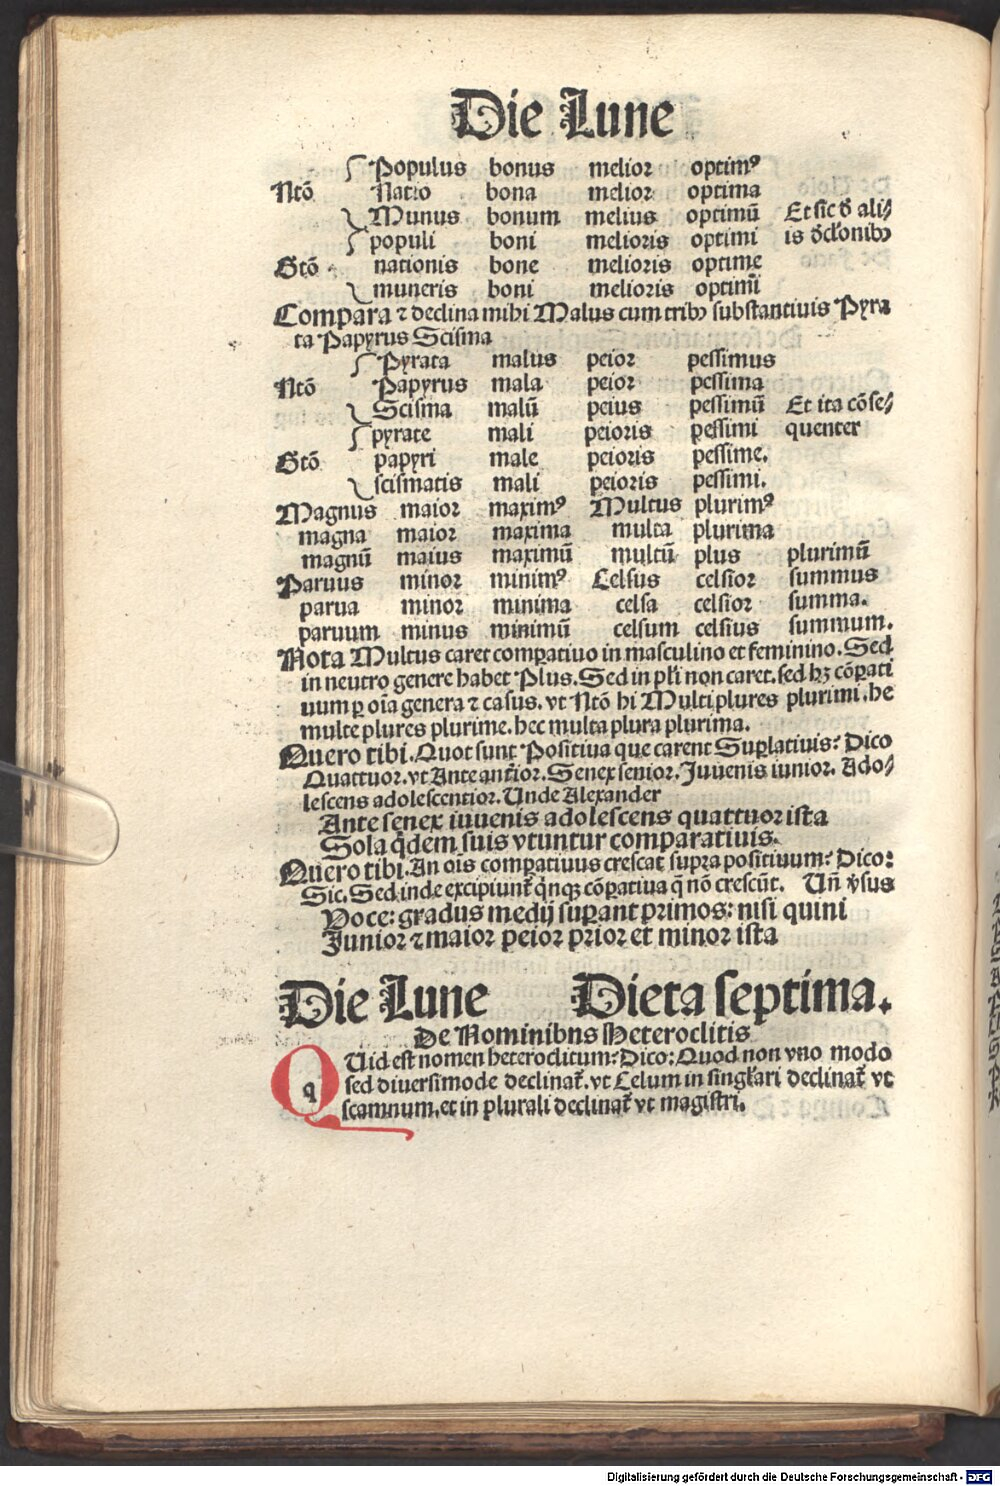 Die Lune
Populus bonus melior optimꝰ
Ntō Natio bona melior optima
Munus bonum melius optimū Et sic ď ali⸗
populi boni melioris optimi is ďcƚonibꝫ
Gtō nationis bone melioris optime
muneris boni melioris optimi
Compara ⁊ declina mihi Malus cum tribꝫ substantiuis Pyra
ta Papyrus Scisma
Pyrata malus peior pessimus
Ntō Papyrus mala peior pessima
Scisma malū peius pessimū Et ita cōse⸗
pyrate mali peioris pessimi quenter
Gtō papyri male peioris pessime.
scismatis mali peioris pessimi.
Magnus maior maximꝰ Multus plurimꝰ
magna maior maxima multa plurima
magnū maius maximū multū plus plurimū
Paruus minor minimꝰ Celsus celsior summus
parua minor minima celsa celsior summa.
paruum minus minimū celsum celsius summum.
Nota Multus caret comꝑatiuo in masculino et feminino. Sed
in neutro genere habet Plus. Sed in pƚi non caret. sed hꝫ cōꝑati
uum ꝑ oīa genera ⁊ casus. vt Ntō hi Multi plures plurimi. he
multe plures plurime. hec multa plura plurima.
Quero tibi. Quot sunt Positiua que carent Suꝑlatiuis? Dico
Quattuor. vt Ante anťior. Senex senior. Juuenis iunior. Ado⸗
lescens adolescentior. Unde Alexander
Ante senex iuuenis adolescens quattuor ista
Sola q̇dem suis vtuntur comparatiuis.
Quero tibi. An oīs comꝑatiuus crescat supra positiuum? Dico:
Sic. Sed inde excipiunť q̇nqꝫ cōꝑatiua q̄ nō crescūt. Un̄ ꝟsus
Doce: gradus medij suꝑant primos: nisi quini
Junior ⁊ maior peior prior et minor ista
Die Lune Dieta septima.
De Nominibns Heteroclitis
Quid est nomen heteroclitum? Dico: Quod non vno modo
sed diuersimode declinať. vt Celum in singƚari declinať vt
scamnum. et in plurali declinať vt magistri.
Digitalisierung gefördert durch die Deutsche Forschungsgemeinschaft - DFG